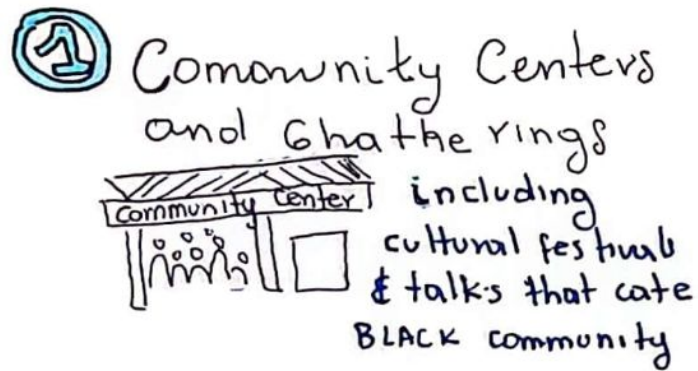 1 Comownity Centers
and Ghatherings
community Center
including
cultural festivals
& talks that cate
BLACK community